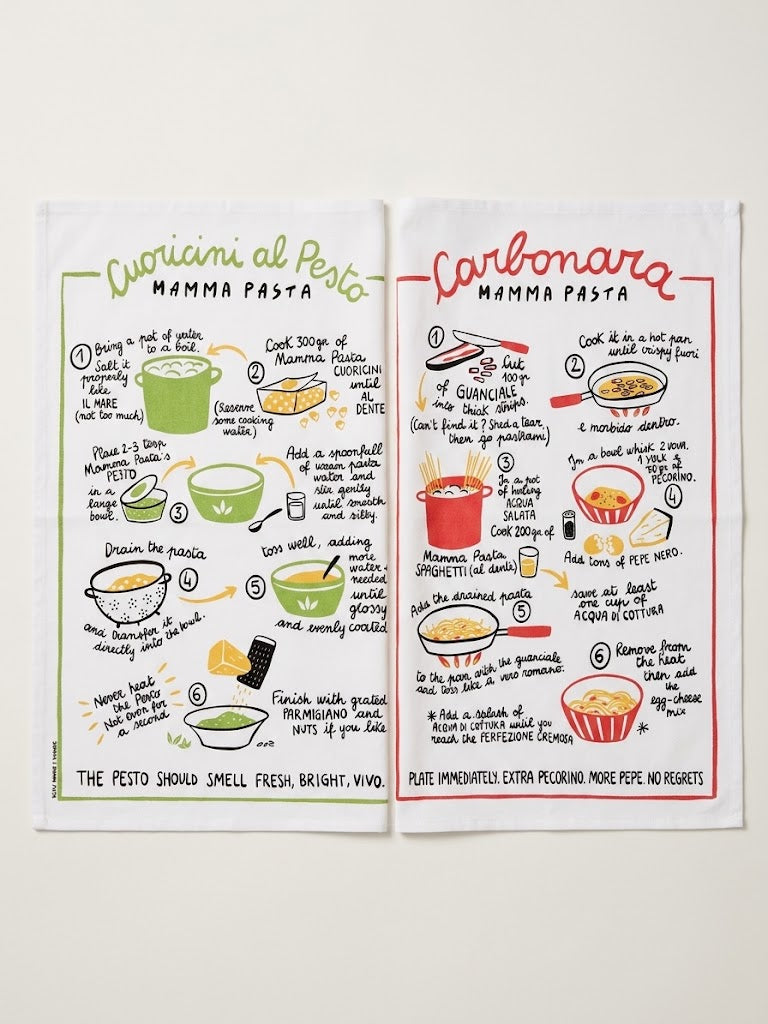 Cuoricini al Pesto
MAMMA PASTA
1
Bring a pot of water
to a boil.
Salt it
properly
like
IL MARE
(not too much)
2
Cook 300gr of
Mamma Pasta
CUORICINI
until
AL
DENTE
(Reserve
some cooking
water)
Place 2-3 tbsp
Mamma Pasta's
PESTO
in a
large
bowl.
3
Add a spoonfull
of warm pasta
water and
stir gently
until smooth
and silky.
Drain the pasta
4
and transfer it
directly into the bowl.
toss well, adding
more
water
needed
until
glossy
and evenly coated
5
Never heat
the Pesto
Not even for
a second
6
Finish with grated
PARMIGIANO and
NUTS if you like
THE PESTO SHOULD SMELL FRESH, BRIGHT, VIVO.
Carbonara
MAMMA PASTA
1
Cut
100 gr
of GUANCIALE
into thick strips.
(Can't find it? Shed a tear,
then go pastrami)
Cook it in a hot pan
until crispy fuori
2
e morbido dentro.
3
In a pot
of boiling
ACQUA
SALATA
Cook 200gr of
Mamma Pasta
SPAGHETTI (al dente)
In a bowl whisk 2 uova,
1 YOLK &
50 gr of
PECORINO.
4
Add tons of PEPE NERO.
save at least
one cup of
ACQUA DI COTTURA
Add the drained pasta
5
to the pan with the guanciale
and toss like a vero romano.
* Add a splash of
ACQUA DI COTTURA until you
reach the PERFEZIONE CREMOSA
6
Remove from
the heat
then add
the
egg-cheese
mix
*
PLATE IMMEDIATELY. EXTRA PECORINO. MORE PEPE. NO REGRETS